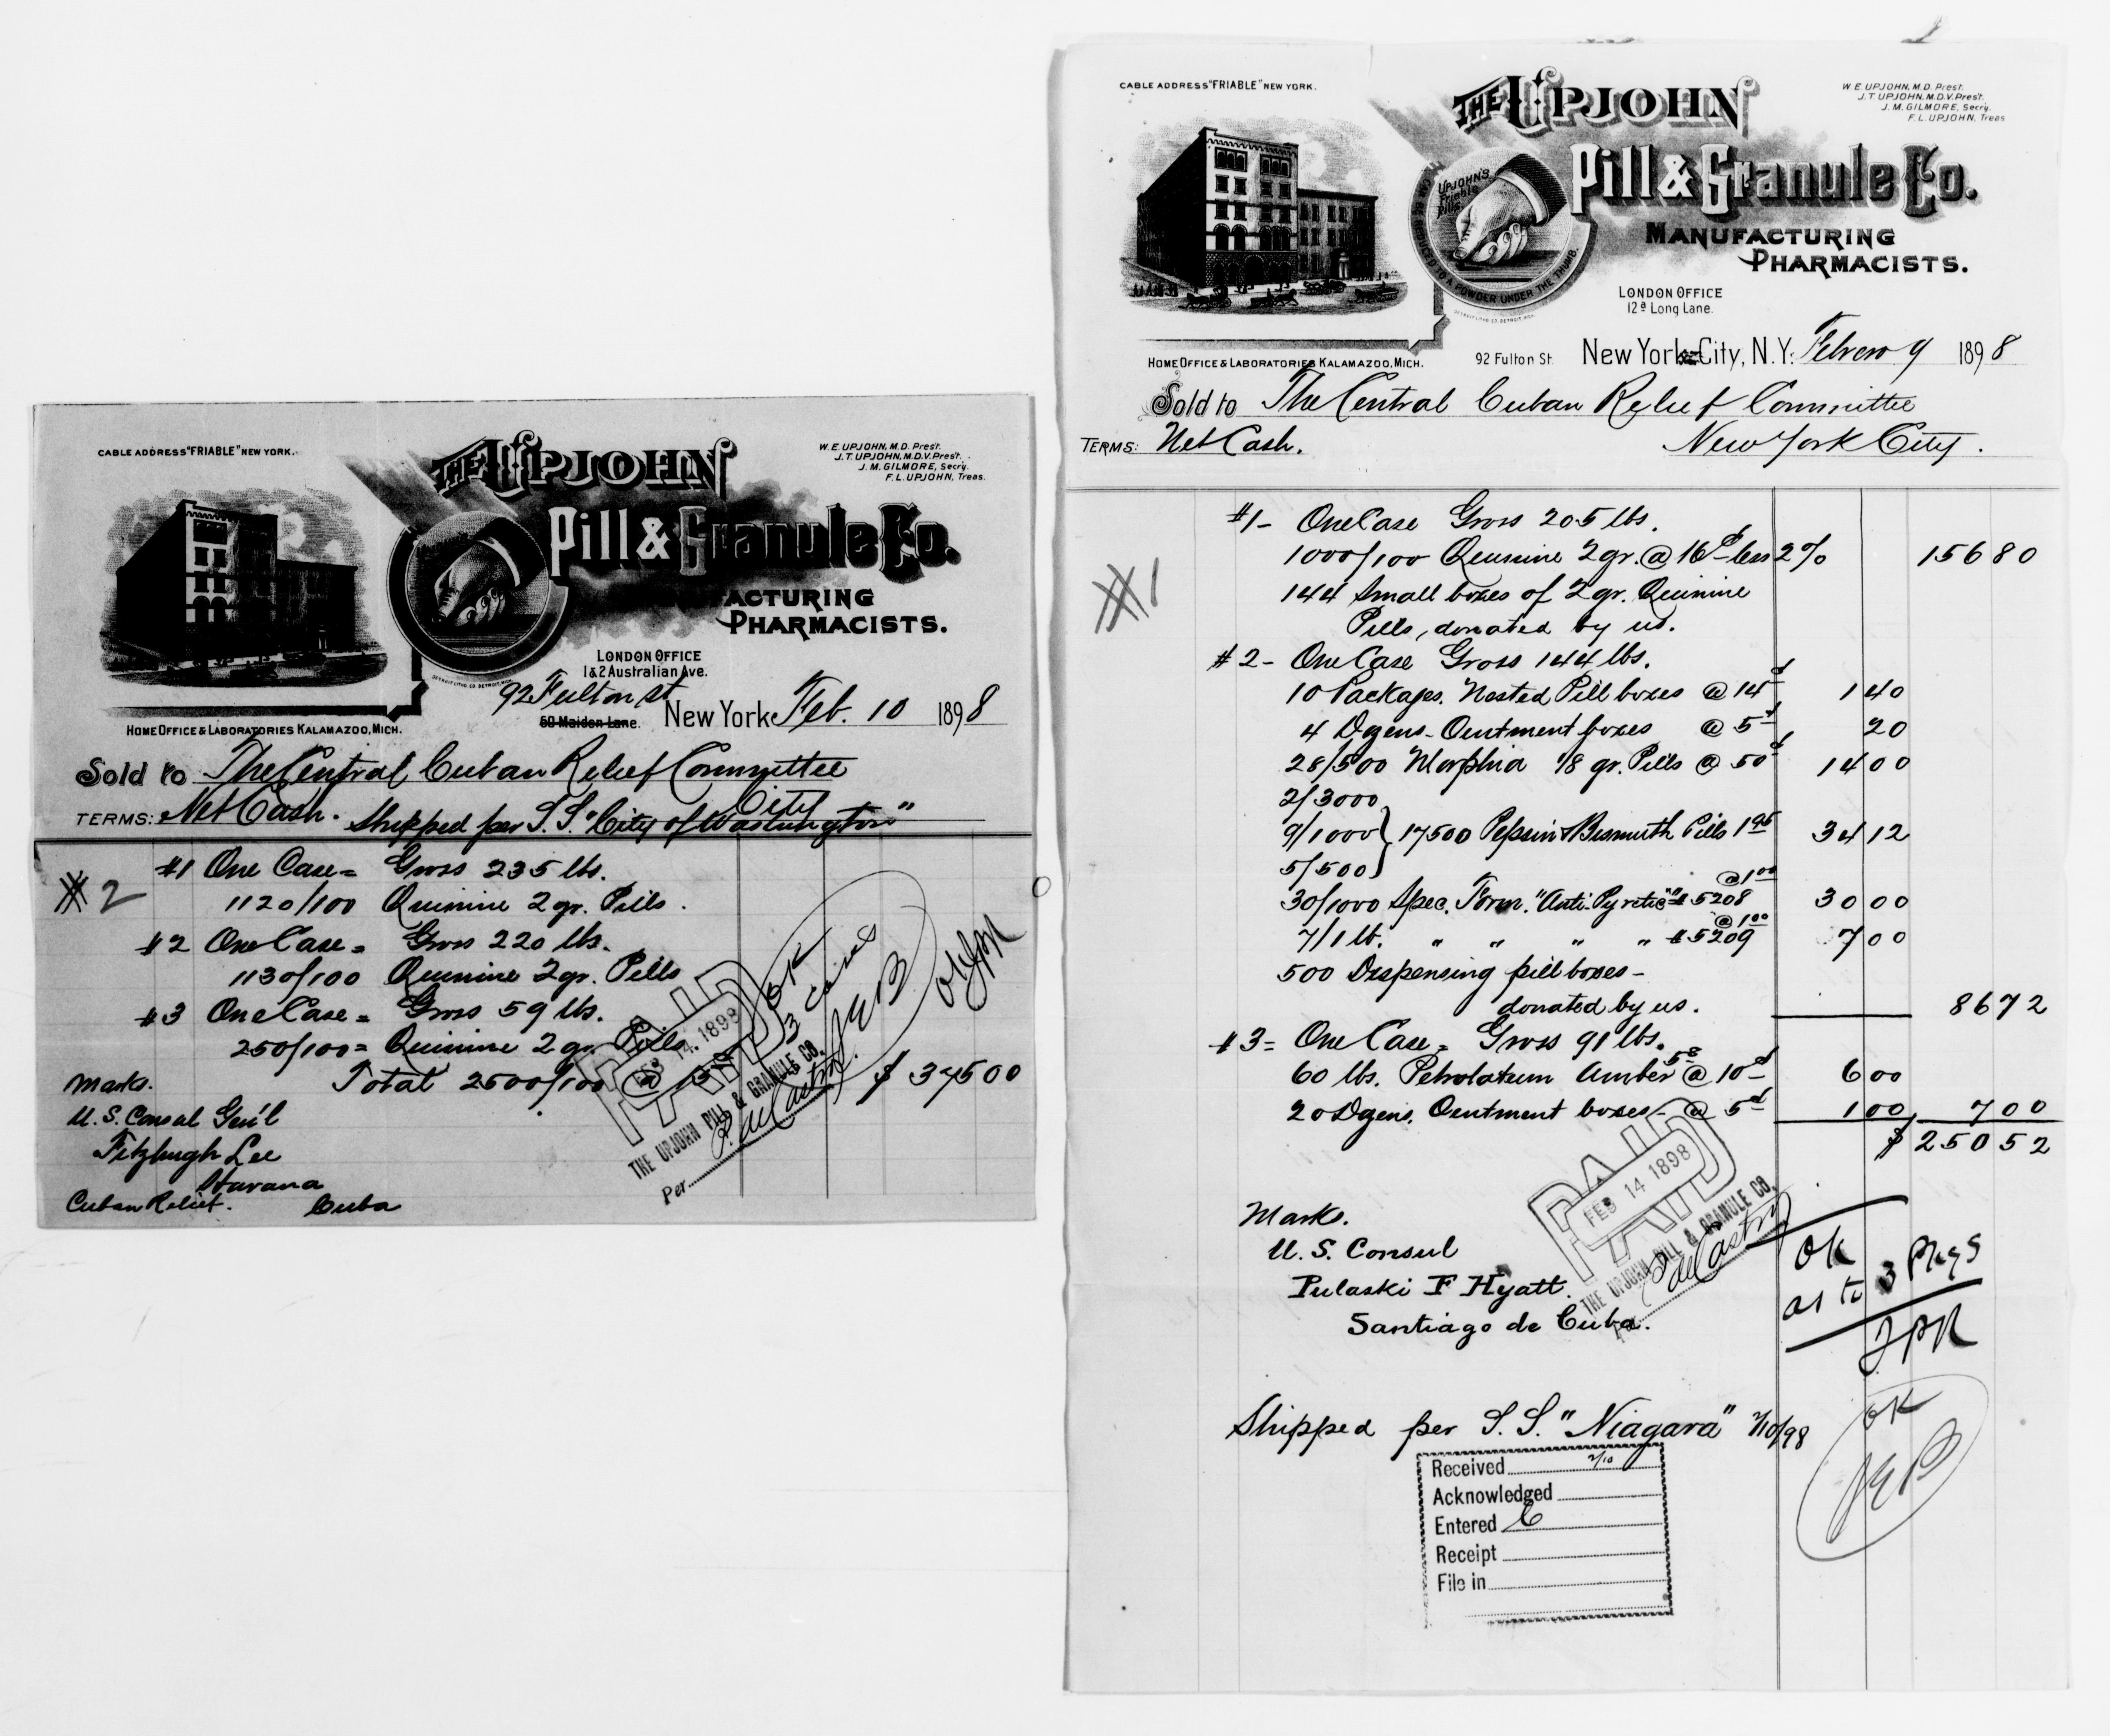 CABLE ADDRESS "FRIABLE" NEW YORK.
THE UPJOHN
Pill & Granule Co.
MANUFACTURING
PHARMACISTS.
W. E. UPJOHN, M.D. Prest.
J. T. UPJOHN, M.D. V. Prest.
J. M. GILMORE, Secry.
F. L. UPJOHN, Treas.
LONDON OFFICE
1 & 2 Australian Ave.
DETROIT LITHO. CO. DETROIT, MICH.
HOME OFFICE & LABORATORIES KALAMAZOO, MICH.
92 Fulton St
60 Maiden Lane. New York Feb. 10 1898
Sold to The Central Cuban Relief Committee
City
TERMS: Net Cash. Shipped per S.S. "City of Washington"
#2
#1 One Case = Gross 235 lbs.
1120/100 Quinine 2 gr. Pills.
#2 One Case = Gross 220 lbs.
1130/100 Quinine 2 gr. Pills
#3 One Case = Gross 59 lbs.
250/100 = Quinine 2 gr. Pills
Total 2500/100 @ 15 $ 375 00
Marks.
U. S. Consul Gen'l
Fitzhugh Lee
Havana
Cuban Relief. Cuba
PAID
FEB 14 1898
THE UPJOHN PILL & GRANULE CO.
Per DeCastro
OK
3 Cases
CABLE ADDRESS "FRIABLE" NEW YORK.
THE UPJOHN
Pill & Granule Co.
MANUFACTURING
PHARMACISTS.
W. E. UPJOHN, M.D. Prest.
J. T. UPJOHN, M.D. V. Prest.
J. M. GILMORE, Secry.
F. L. UPJOHN, Treas
UPJOHN'S
Friable
Pills
CAN BE REDUCED TO A POWDER UNDER THE THUMB.
LONDON OFFICE
12ª Long Lane.
DETROIT LITHO. CO. DETROIT, MICH.
HOME OFFICE & LABORATORIES KALAMAZOO, MICH.
92 Fulton St. New York City, N.Y. Febrero 9 1898
Sold to The Central Cuban Relief Committee
TERMS: Net Cash. New York City.
#1
#1- One Case Gross 205 lbs.
1000/100 Quinine 2 gr. @ 16¢ less 2% 156 80
144 Small boxes of 2 gr. Quinine
Pills, donated by us.
#2- One Case Gross 144 lbs.
10 Packages. Nested Pill boxes @ 14 1 40
4 Dozens. Ointment boxes @ 5 20
28/500 Morphia 1/8 gr. Pills @ 50 14 00
2/3000
9/1000 } 17500 Pepsin & Bismuth Pills 1 95 34 12
5/500
30/1000 Spec. Form. "Anti-Pyretic" #5208 @ 1 00 30 00
7/1 lb. " " " " #5209 @ 1 00 7 00
500 Dispensing pill boxes -
donated by us. 86 72
#3 = One Case = Gross 91 lbs.
60 lbs. Petrolatum Amber 5# @ 10 6 00
20 Dozens. Ointment boxes - @ 5 1 00 7 00
$ 250 52
Marks.
U. S. Consul
Pulaski F Hyatt.
Santiago de Cuba.
PAID
FEB 14 1898
THE UPJOHN PILL & GRANULE CO.
Per DeCastro
OK
as to 3 Pkgs
Shipped per S.S. "Niagara" 2/10/98
OK
Received 2/10
Acknowledged
Entered C
Receipt
File in